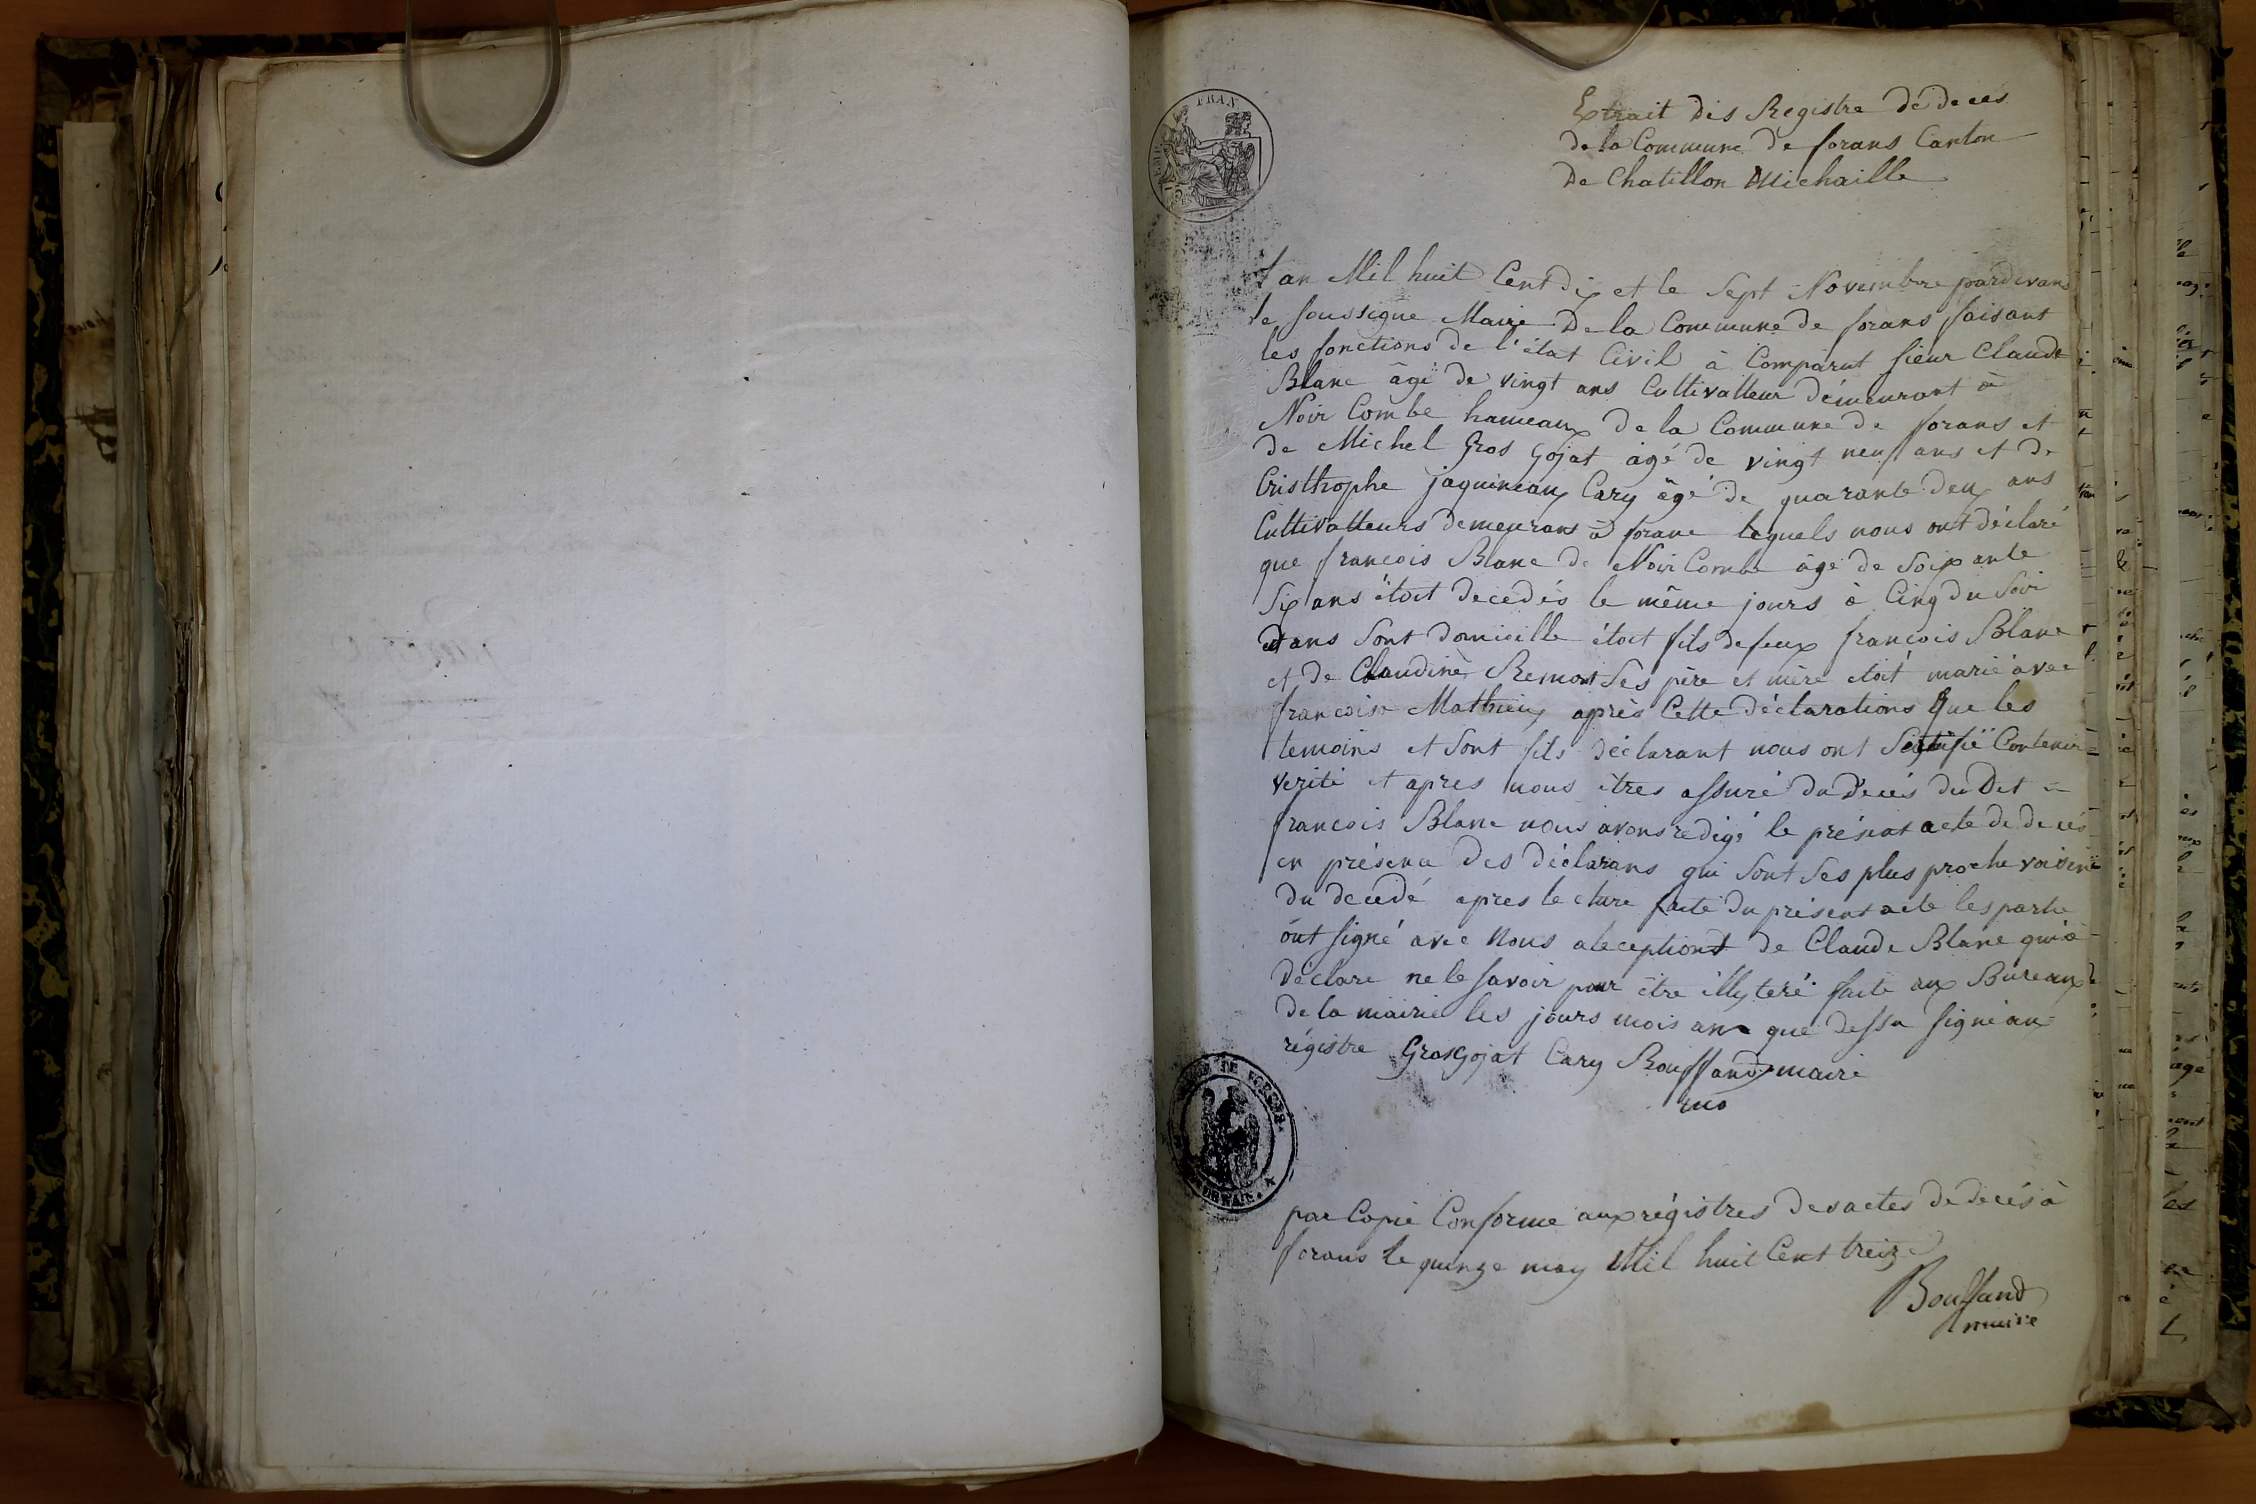 Extrait des Registre de deces
de la Commune de forans Canton
De Chatillon Michaille
FRAN
l'an Mil huit Cent dix et le Sept Novembre pardevans
le soussigne Maire De la Commune de forans faisant
les fonctions de l'état Civil à Comparut sieur Claude
Blanc âgé de vingt ans Cultivatteur démeurant à
Noir Combe hameaux de la Commune de forans et
de Michel Gros Gojat âgé de vingt neuf ans et de
Cristhophe jaquineaux Cary âgé de quarante deux ans
Cultivatteurs demeurans à forans lequels nous ont déclaré
que francois Blanc de Noir Combe âgé de Soixante
Six ans étoit decedés le même jours à Cinq du Soir
dans Sont domicille étoit fils de feux francois Blanc
et de Claudine Remont Ses père et mère etoit marié avec
francoise Mathieux après Cette déclarations Que les
temoins et Sont fils déclarant nous ont Certifié Contenir
verité et apres nous êtres assuré du Décés du Dit
francois Blanc nous avons redigé le présent acte de decés
en présence des déclarans qui Sont Ses plus proche voisin
du decedé apres lecture faite du présent acte les partie
ont signé avec Nous aleception de Claude Blanc qui a
déclare ne le savoir pour être illyteré faite aux Bureaux
de la mairie les jours mois an que dessu signé au
régistre GrosGojat Cary Bouffand maire
par Copie Conforme aux régistres des actes de decés à
forans le quinze may Mil huit Cent treize
Bouffand
maire